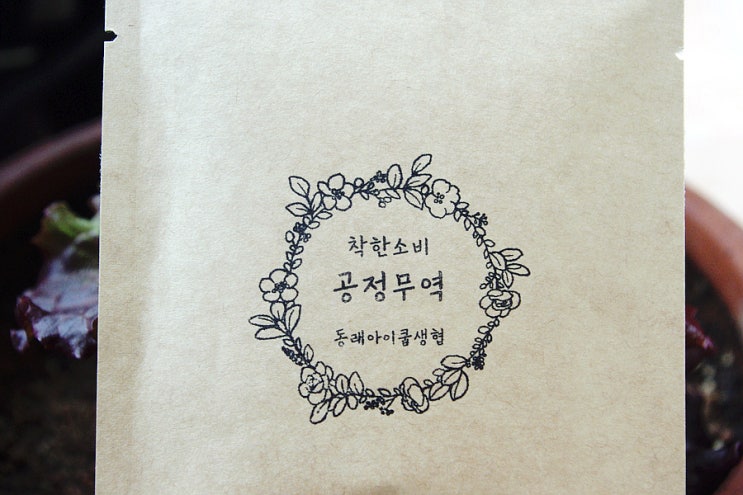 착한소비
공정무역
동래아이쿱생협